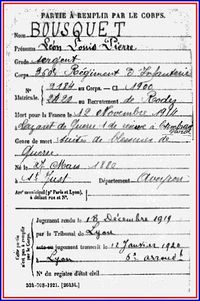 PARTIE À REMPLIR PAR LE CORPS.
Nom BOUSQUET
Prénoms Léon Louis Pierre
Grade sergent
Corps 360e Régiment d'Infanterie
N° 2184 au Corps. — Cl. 1900
Matricule. 2420 au Recrutement de Rodez
Mort pour la France le 12 Novembre 1914
Genre de mort Suites de blessures de
Guerre
Né le 27 Mars 1880
à St Just Département Aveyron
Arr' municipal (p' Paris et Lyon),
à défaut rue et N°.
Jugement rendu le 18 Décembre 1919
par le Tribunal de Lyon
jugement transcrit le 11 Janvier 1920
à Lyon 5e arrondt
N° du registre d'état civil